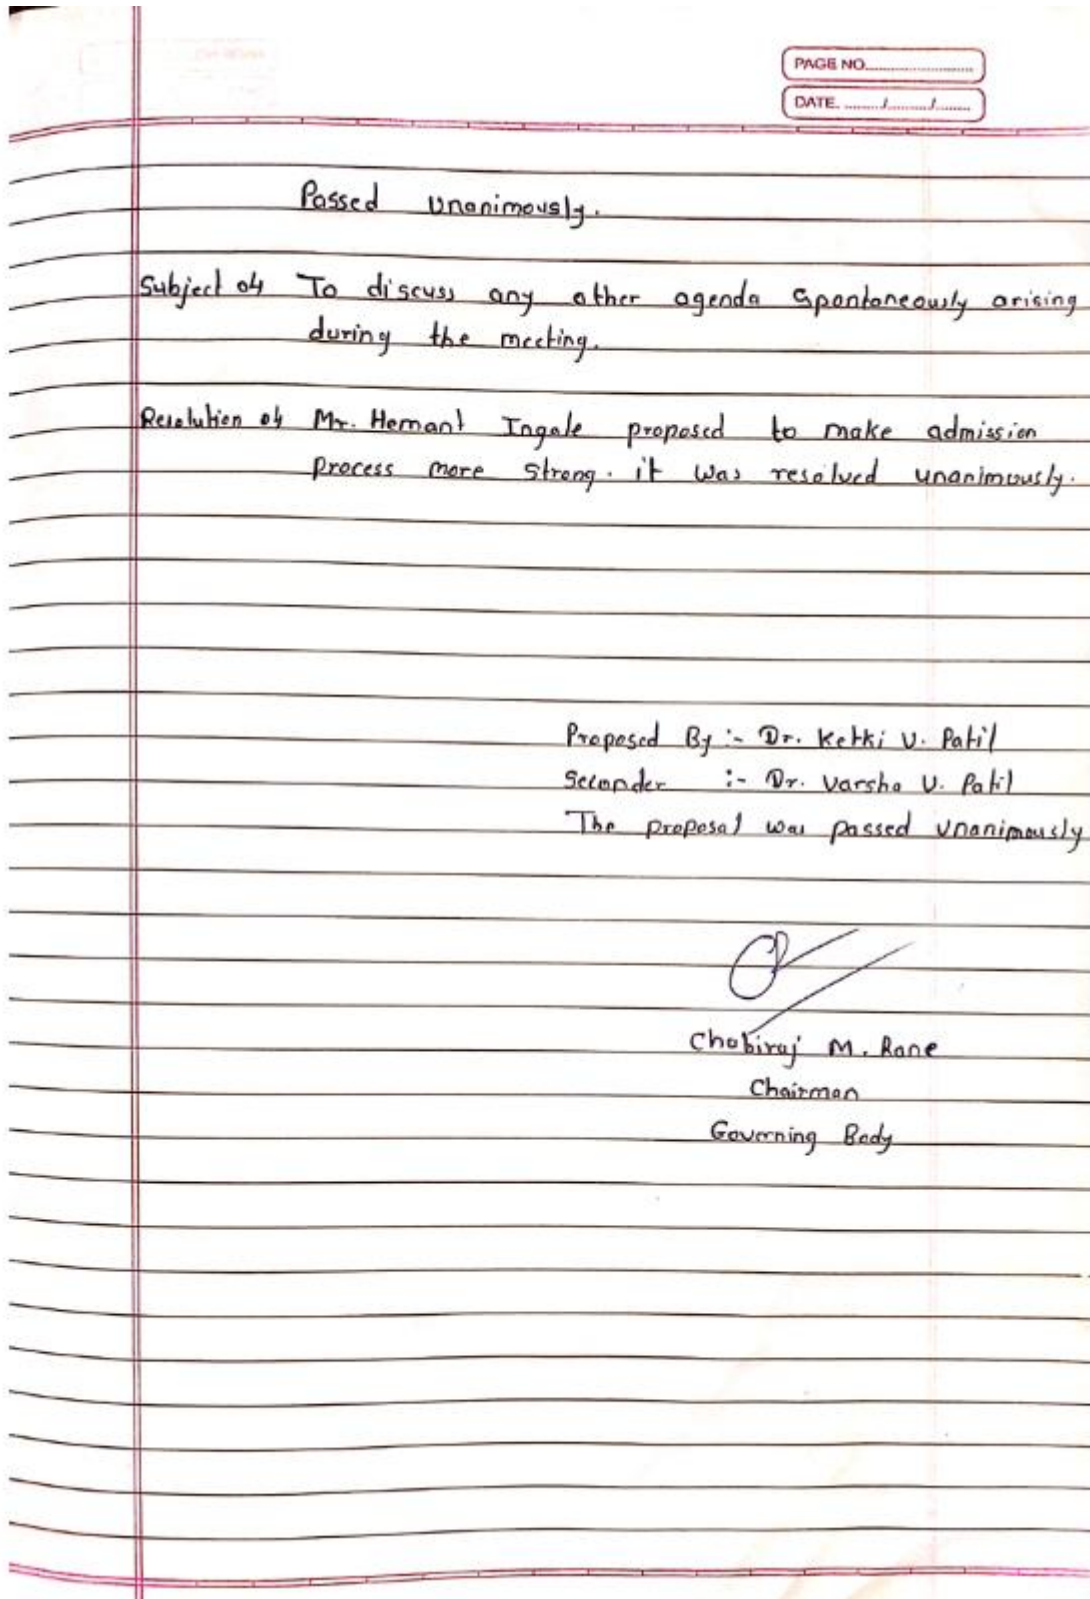 PAGE NO.
DATE. / /
Passed unanimously.
Subject 04 To discuss any other agenda spontaneously arising
during the meeting.
Resolution 04 Mr. Hemant Ingale proposed to make admission
process more strong. it was resolved unanimously.
Proposed By :- Dr. Ketki V. Patil
Seconder :- Dr. Varsha V. Patil
The proposal was passed unanimously
Chabiraj M. Rane
Chairman
Governing Body